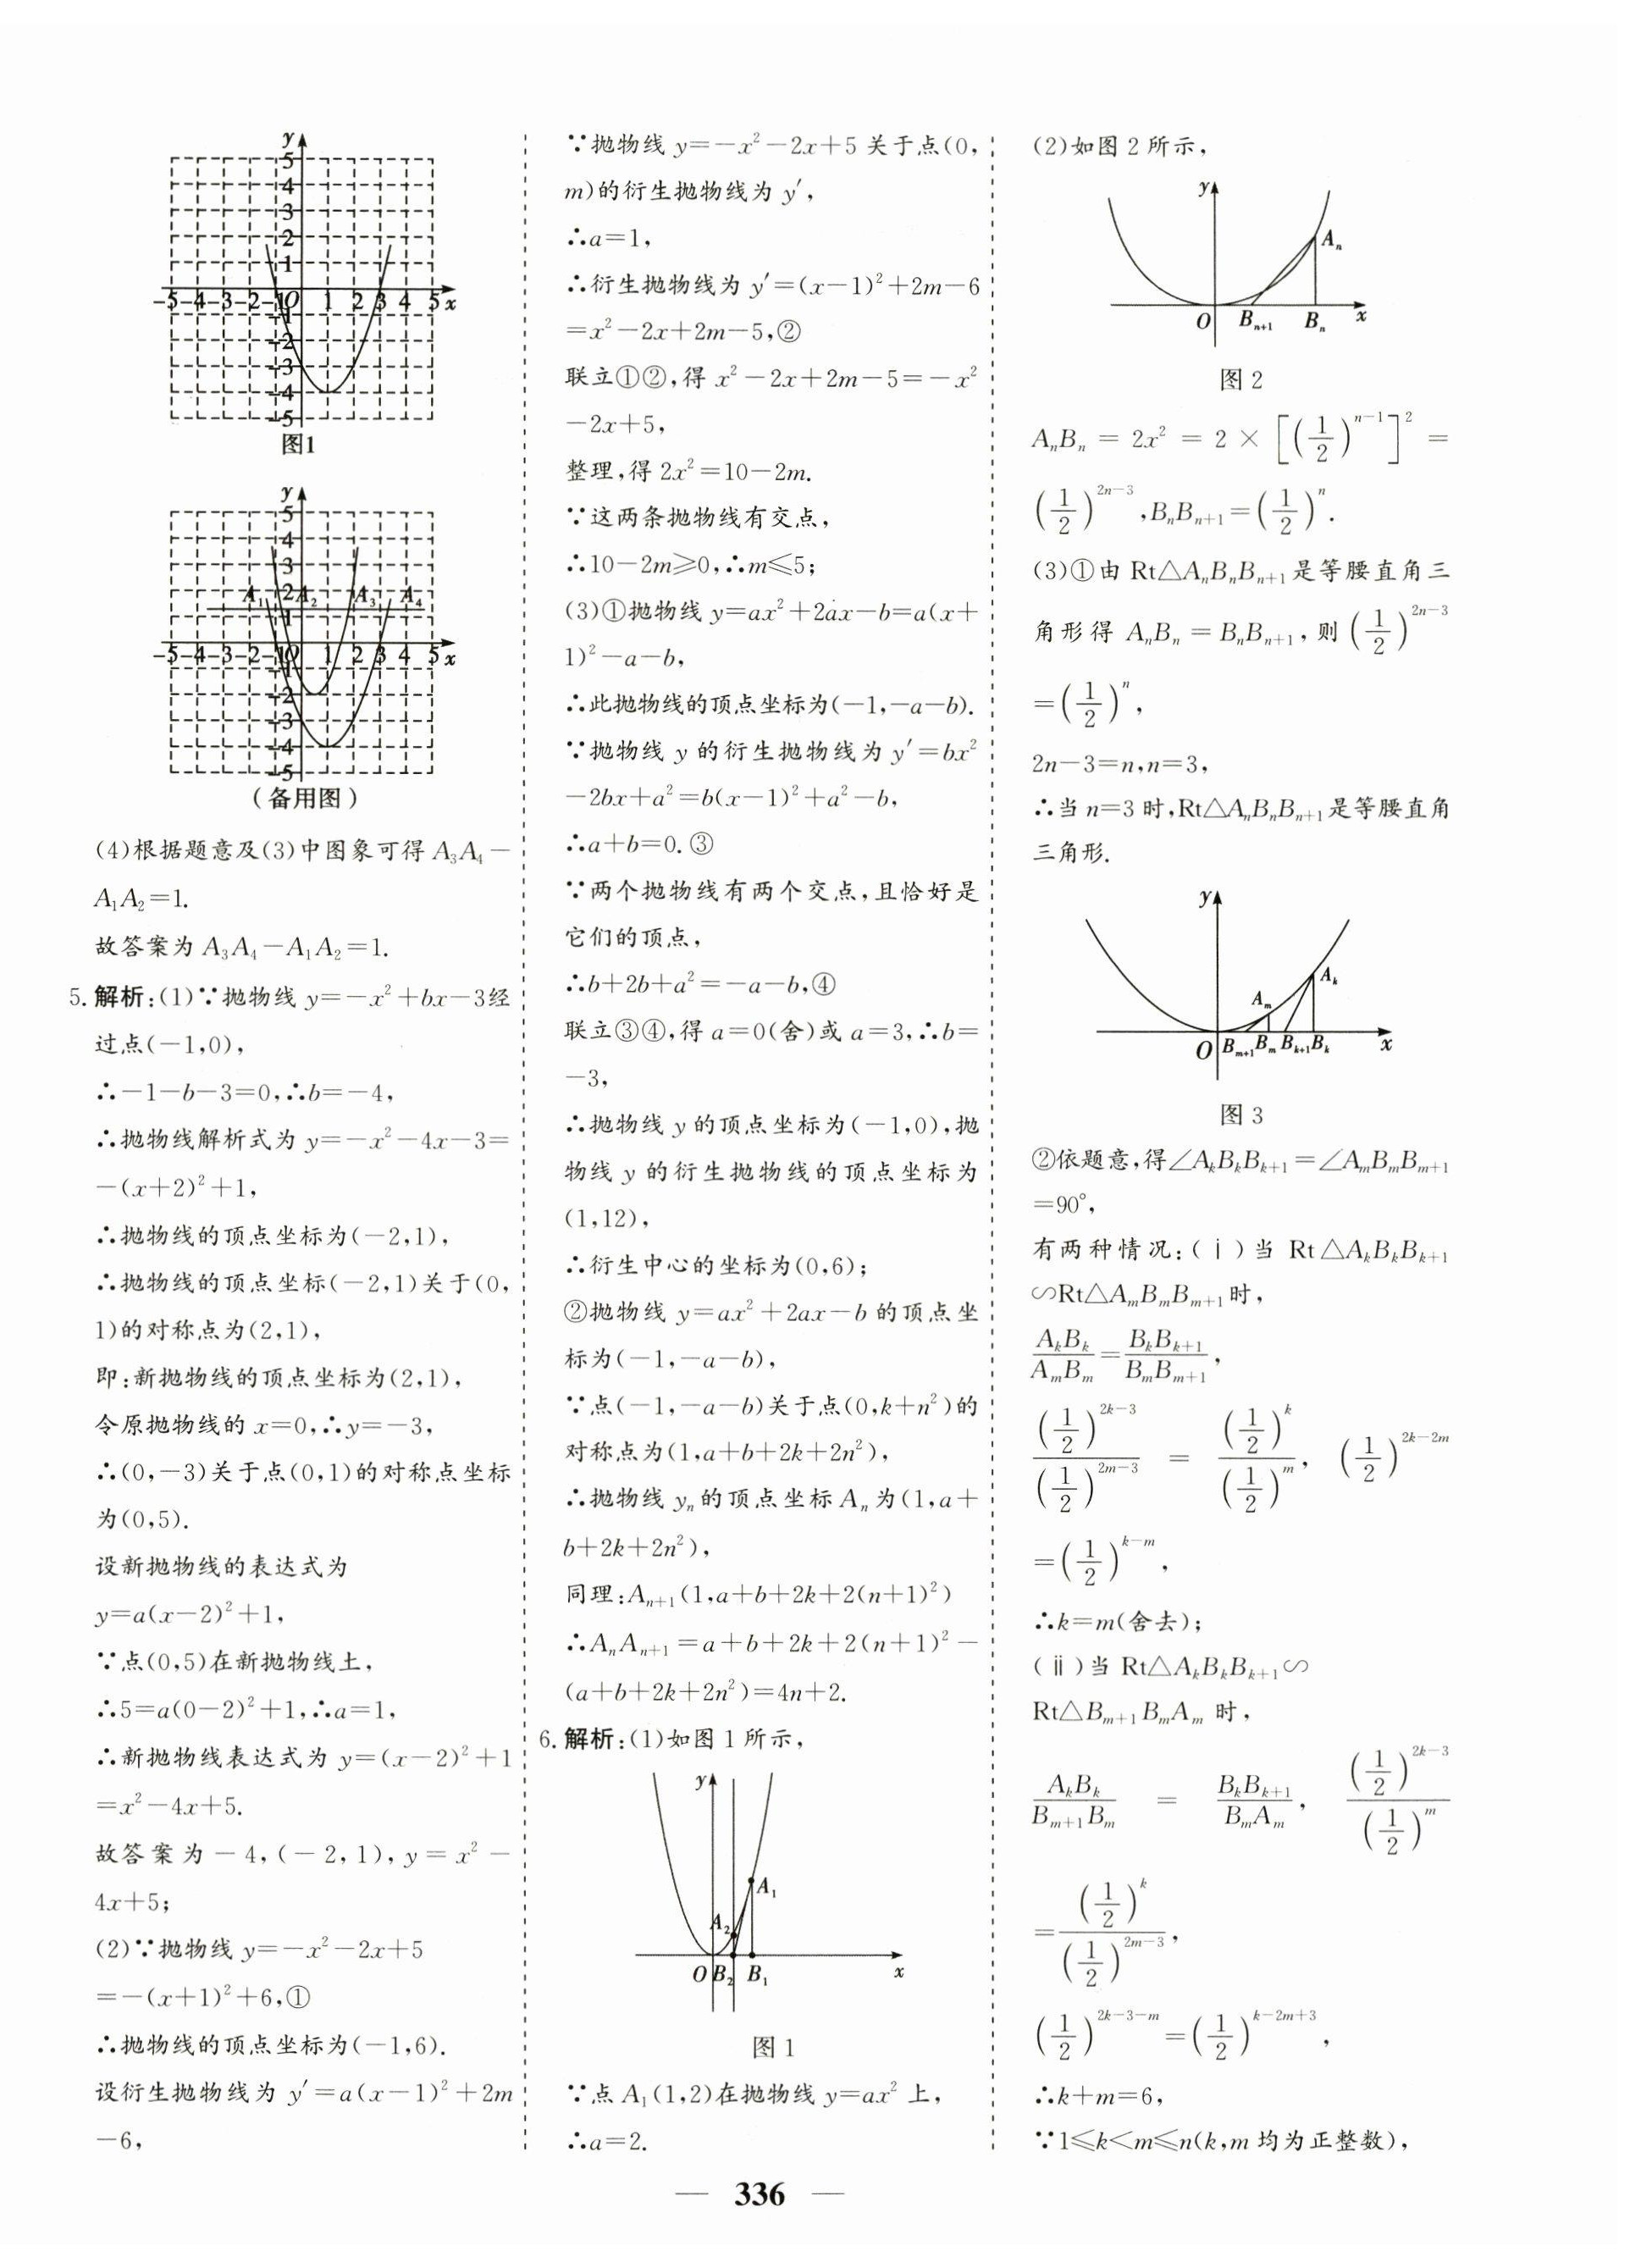 y
5
4
3
2
1
-5 -4 -3 -2 -1 O 1 2 3 4 5 x
-1
-2
-3
-4
-5
图1
y
5
4
3
A₁ 2 A₂ A₃ A₄
1
-5 -4 -3 -2 -1 O 1 2 3 4 5 x
-1
-2
-3
-4
-5
(备用图)
(4)根据题意及(3)中图象可得 A₃A₄－
A₁A₂=1.
故答案为 A₃A₄－A₁A₂=1.
5.解析:(1)∵抛物线 y=－x²+bx－3经
过点(－1,0),
∴－1－b－3=0,∴b=－4,
∴抛物线解析式为 y=－x²－4x－3=
－(x+2)²+1,
∴抛物线的顶点坐标为(－2,1),
∴抛物线的顶点坐标(－2,1)关于(0,
1)的对称点为(2,1),
即:新抛物线的顶点坐标为(2,1),
令原抛物线的 x=0,∴y=－3,
∴(0,－3)关于点(0,1)的对称点坐标
为(0,5).
设新抛物线的表达式为
y=a(x－2)²+1,
∵点(0,5)在新抛物线土,
∴5=a(0－2)²+1,∴a=1,
∴新抛物线表达式为 y=(x－2)²+1
=x²－4x+5.
故答案为－4,(－2,1),y=x²－
4x+5;
(2)∵抛物线 y=－x²－2x+5
=－(x+1)²+6,①
∴抛物线的顶点坐标为(－1,6).
设衍生抛物线为 y′=a(x－1)²+2m
－6,
∵抛物线 y=－x²－2x+5 关于点(0,
m)的衍生抛物线为 y′,
∴a=1,
∴衍生抛物线为 y′=(x－1)²+2m－6
=x²－2x+2m－5,②
联立①②,得 x²－2x+2m－5=－x²
－2x+5,
整理,得 2x²=10－2m.
∵这两条抛物线有交点,
∴10－2m⩾0,∴m⩽5;
(3)①抛物线 y=ax²+2ax－b=a(x+
1)²－a－b,
∴此抛物线的顶点坐标为(－1,－a－b).
∵抛物线 y 的衍生抛物线为 y′=bx²
－2bx+a²=b(x－1)²+a²－b,
∴a+b=0.③
∵两个抛物线有两个交点,且恰好是
它们的顶点,
∴b+2b+a²=－a－b,④
联立③④,得 a=0(舍)或 a=3,∴b=
－3,
∴抛物线 y 的顶点坐标为(－1,0),抛
物线 y 的衍生抛物线的顶点坐标为
(1,12),
∴衍生中心的坐标为(0,6);
②抛物线 y=ax²+2ax－b 的顶点坐
标为(－1,－a－b),
∵点(－1,－a－b)关于点(0,k+n²)的
对称点为(1,a+b+2k+2n²),
∴抛物线 yₙ 的顶点坐标 Aₙ 为(1,a+
b+2k+2n²),
同理:Aₙ₊₁(1,a+b+2k+2(n+1)²)
∴AₙAₙ₊₁=a+b+2k+2(n+1)²－
(a+b+2k+2n²)=4n+2.
6.解析:(1)如图 1 所示,
y
A₁
A₂
O B₂ B₁ x
图 1
∵点 A₁(1,2)在抛物线 y=ax² 上,
∴a=2.
(2)如图 2 所示,
y
Aₙ
O Bₙ₊₁ Bₙ x
图 2
AₙBₙ = 2x² = 2 × [(1/2)^(n－1)]² =
(1/2)^(2n－3),BₙBₙ₊₁=(1/2)^n.
(3)①由 Rt△AₙBₙBₙ₊₁是等腰直角三
角形得 AₙBₙ=BₙBₙ₊₁,则(1/2)^(2n－3)
=(1/2)^n,
2n－3=n,n=3,
∴当 n=3 时,Rt△AₙBₙBₙ₊₁是等腰直角
三角形.
y
Aₖ
Aₘ
O Bₘ₊₁ Bₘ Bₖ₊₁ Bₖ x
图 3
②依题意,得∠AₖBₖBₖ₊₁=∠AₘBₘBₘ₊₁
=90°,
有两种情况:(ⅰ)当 Rt△AₖBₖBₖ₊₁
∽Rt△AₘBₘBₘ₊₁时,
AₖBₖ/AₘBₘ=BₖBₖ₊₁/BₘBₘ₊₁,
(1/2)^(2k－3)/(1/2)^(2m－3) = (1/2)^k/(1/2)^m, (1/2)^(2k－2m)
=(1/2)^(k－m),
∴k=m(舍去);
(ⅱ)当 Rt△AₖBₖBₖ₊₁∽
Rt△Bₘ₊₁BₘAₘ 时,
AₖBₖ/Bₘ₊₁Bₘ = BₖBₖ₊₁/BₘAₘ, (1/2)^(2k－3)/(1/2)^m
=(1/2)^k/(1/2)^(2m－3),
(1/2)^(2k－3－m)=(1/2)^(k－2m+3),
∴k+m=6,
∵1⩽k<m⩽n(k,m 均为正整数),
— 336 —